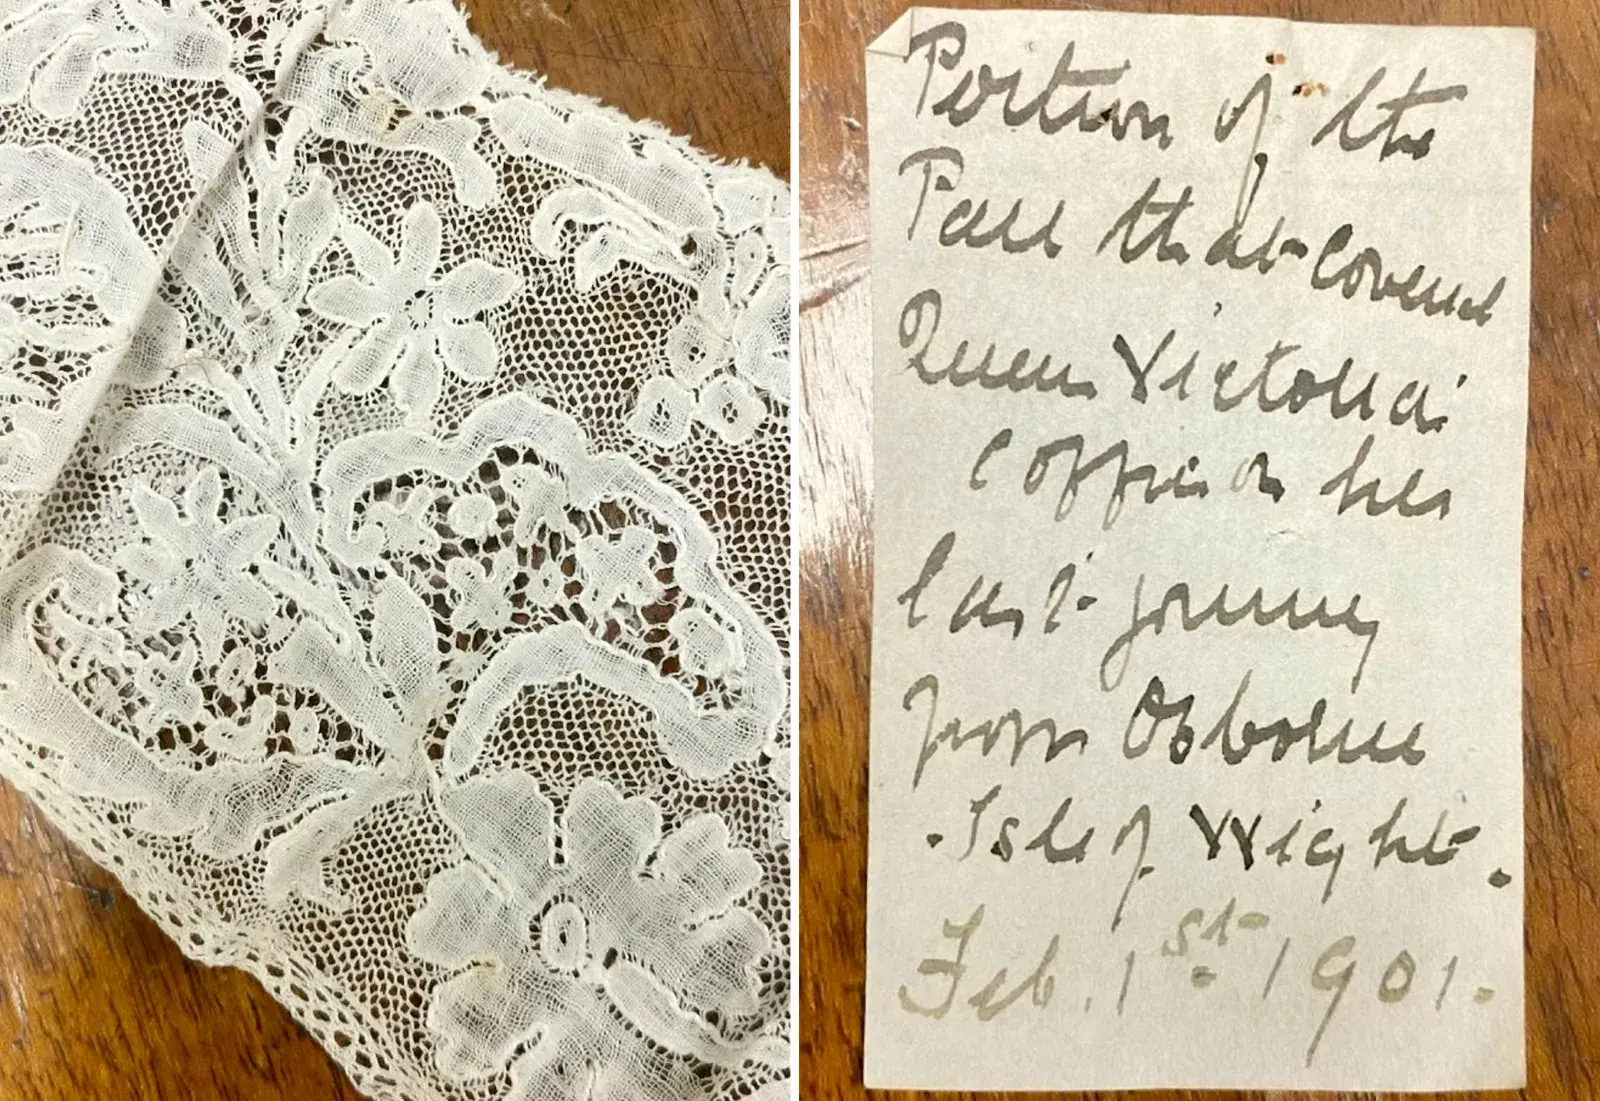 Portion of the
Pall that covered
Queen Victoria's
coffin on her
last journey
from Osborne
. Isle of Wight .
Feb. 1st 1901.